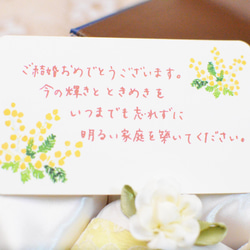 ご結婚おめでとうございます。
今の輝きとときめきを
いつまでも忘れずに
明るい家庭を築いてください。